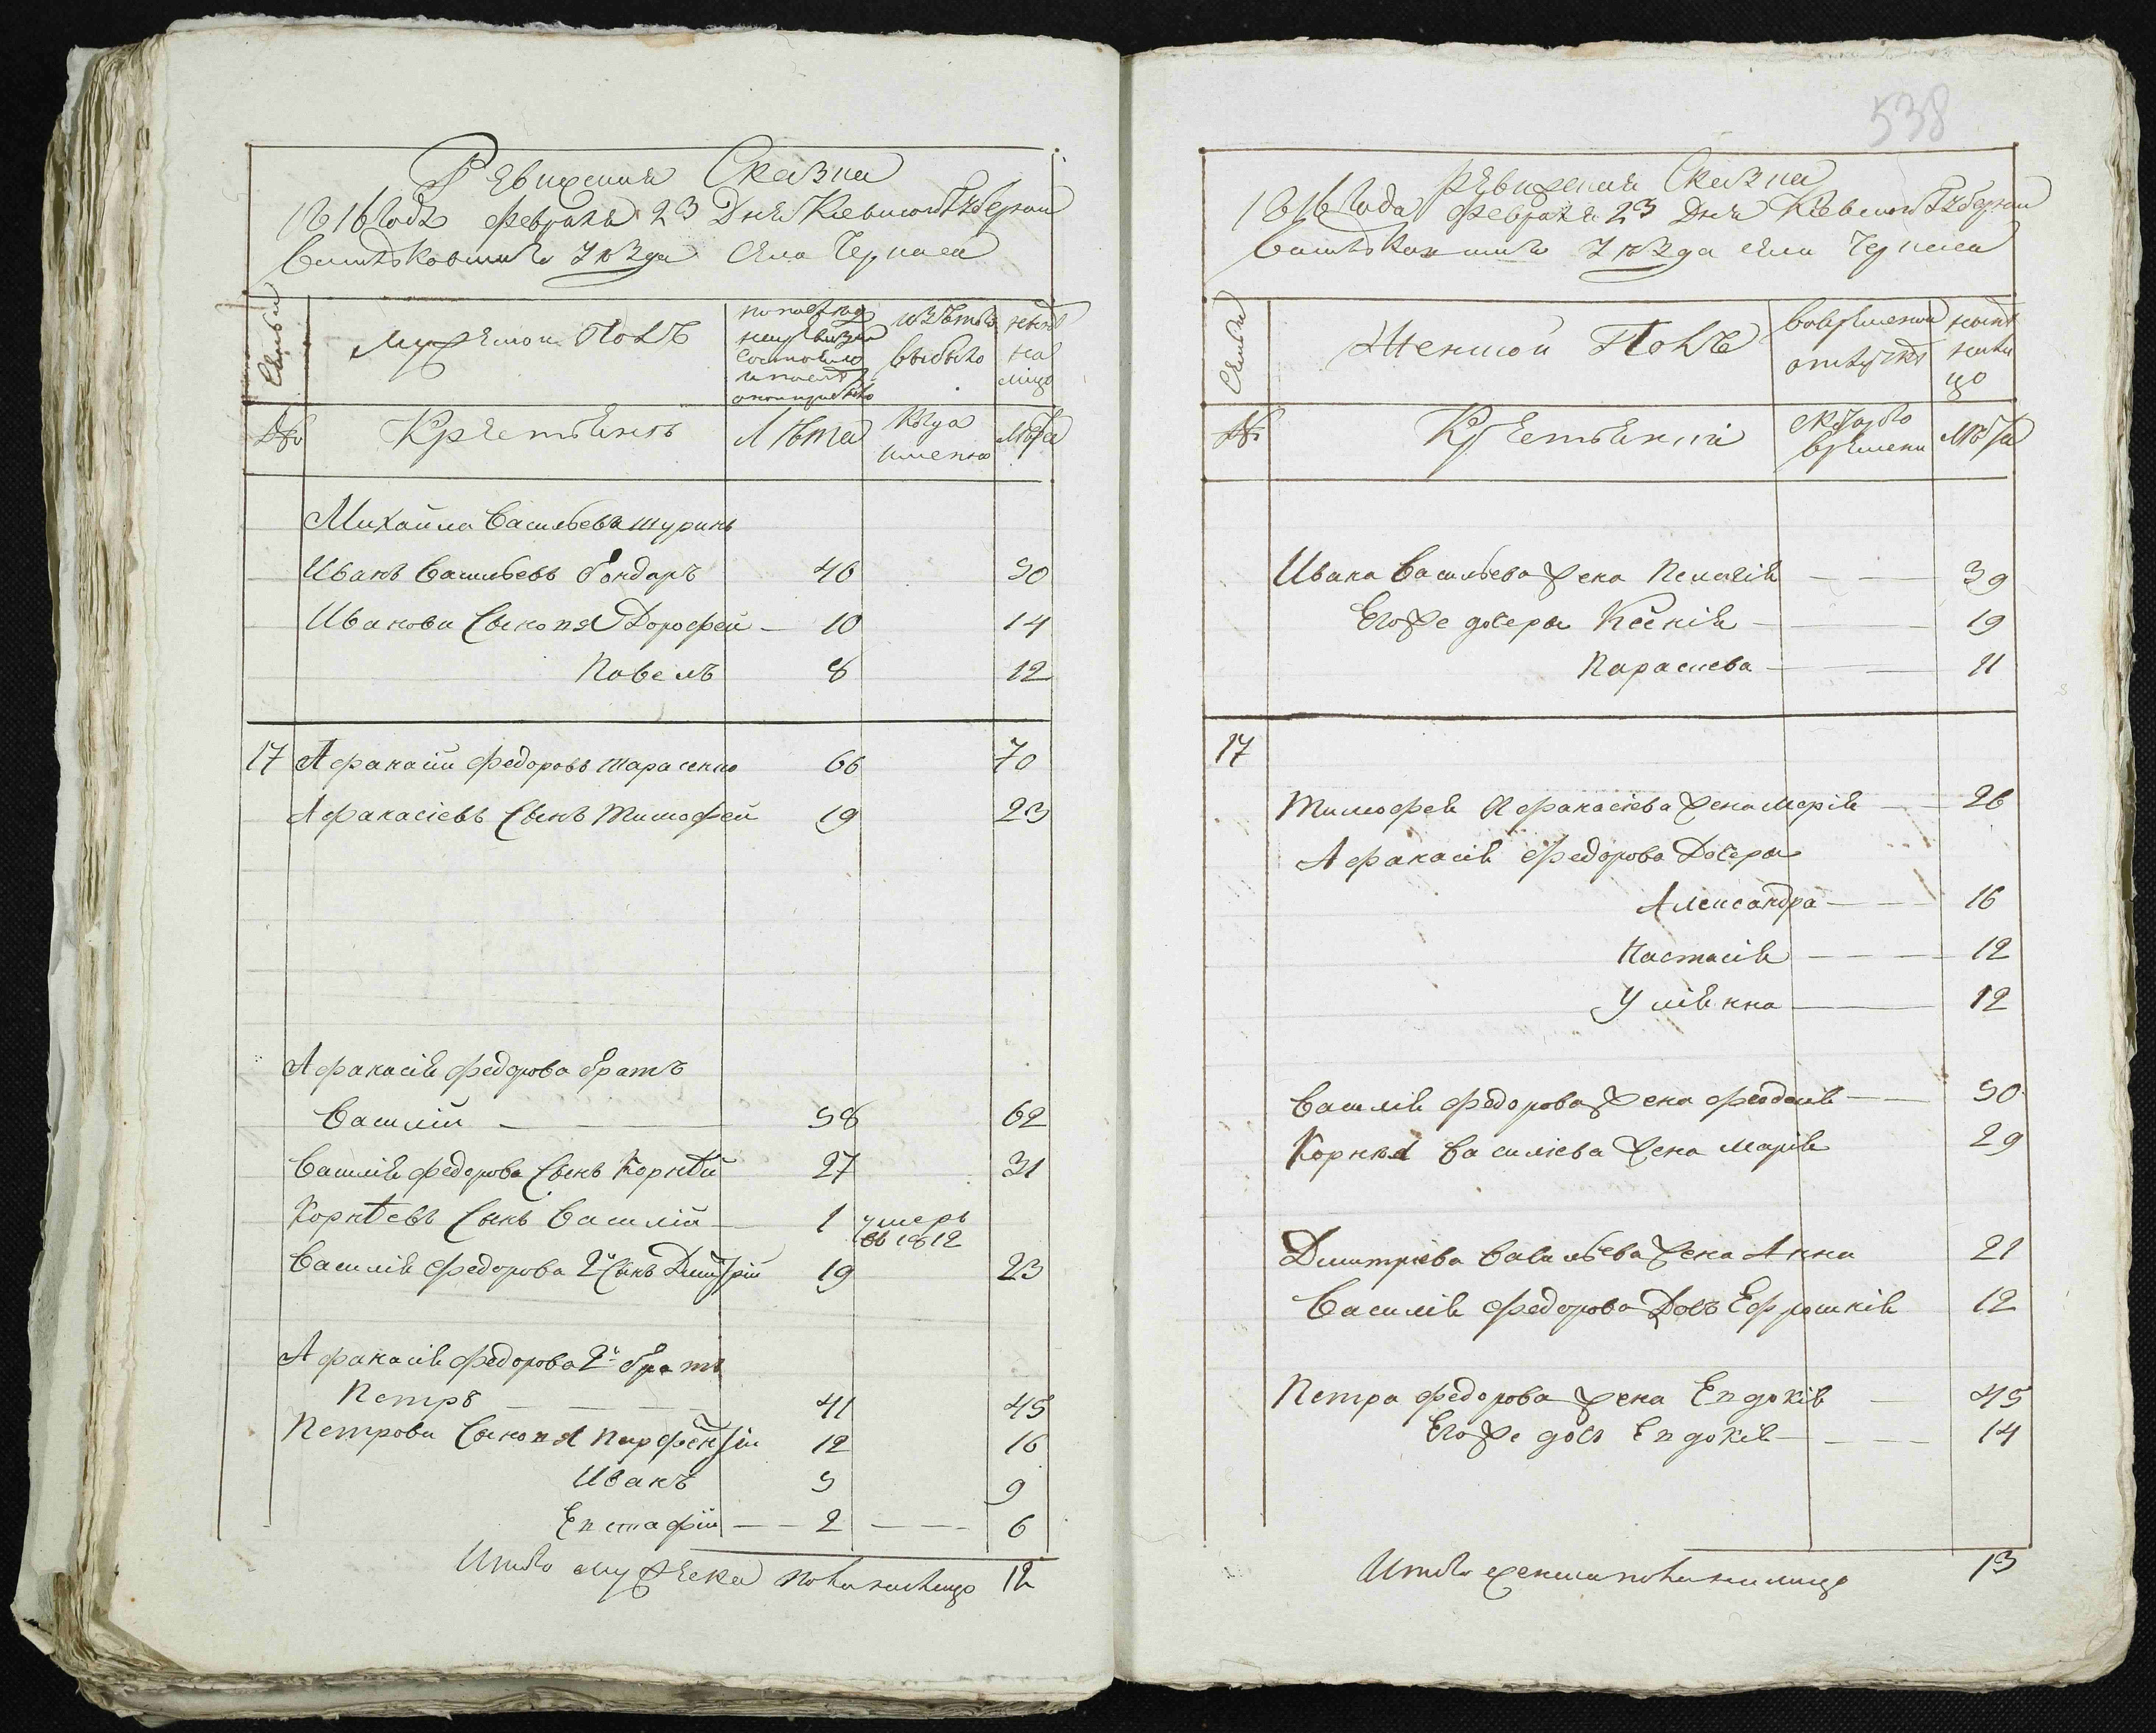 Ревизская Сказка
1816 Года февраля 23 Дня Киевской Губернии
Васильковскаго Уезда Села Черкаса
Семьи
Мужескои Полъ
по последней ревизии состояло и после оной прибыло
изъ того выбыло
ныне на лицо
№
Крестьянъ
Лета
Когда именно
Лета
Михаила Васильева шуринъ
Иванъ Васильевъ бондаръ 46 50
Ивановы Сыновья Дорофей 10 14
Павелъ 8 12
17 Афанасий Федоровъ тарасенко 66 70
Афанасіевъ Сынъ Тимофей 19 23
Афанасія Федорова братъ
Василій 58 62
Василія Федорова Сынъ Корнѣй 27 31
Корнѣевъ Сынъ Василій 1 умеръ
въ 1812
Василія Федорова 2й Сынъ Дмитрій 19 23
Афанасія Федорова 2й братъ
Петръ 41 45
Петровы Сыновья Парфентій 12 16
Иванъ 5 9
Евстафій 2 6
Итого мужеска пола налицо 12
538
Ревизская Сказка
1816 Года февраля 23 Дня Киевской Губернии
Васильковскаго Уезда села Черкаса
Семьи
Женской Полъ
во временной отлучке
ныне налицо
№
Крестьянкій
с котораго времени
Лета
Ивана Васильева жена Пелагія 39
Егоже дочеры Ксенія 19
Параскева 11
17
Тимофея Афанасіева жена Марія 26
Афанасія Федорова Дочеры
Александра 16
Настасія 12
Уліянна 12
Василія Федорова жена Феодосія 50
Корнея Василіева жена Марія 29
Дмитріева Васильева жена Анна 21
Василія Федорова Дочъ Ефросинія 12
Петра Федорова жена Евдокія 45
Егоже дочъ Евдокія 14
Итого женска пола налицо 13